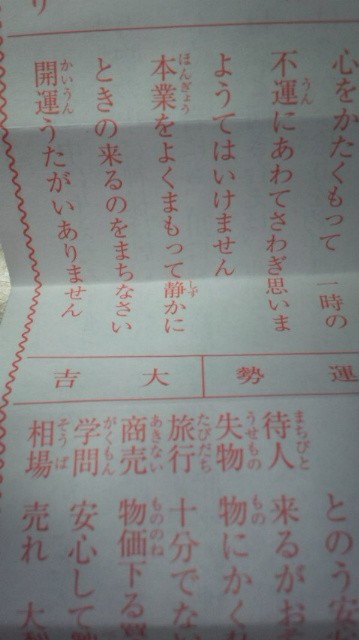 り
心をかたくもって 一時の
不運にあわてさわぎ思いま
ようてはいけません
本業をよくまもって静かに
ときの来るのをまちなさい
開運うたがいありません
運勢 大吉
とのう安
待人 来るがお
失物 物にかく
旅行 十分でな
商売 物価下る
学問 安心して
相場 売れ 大